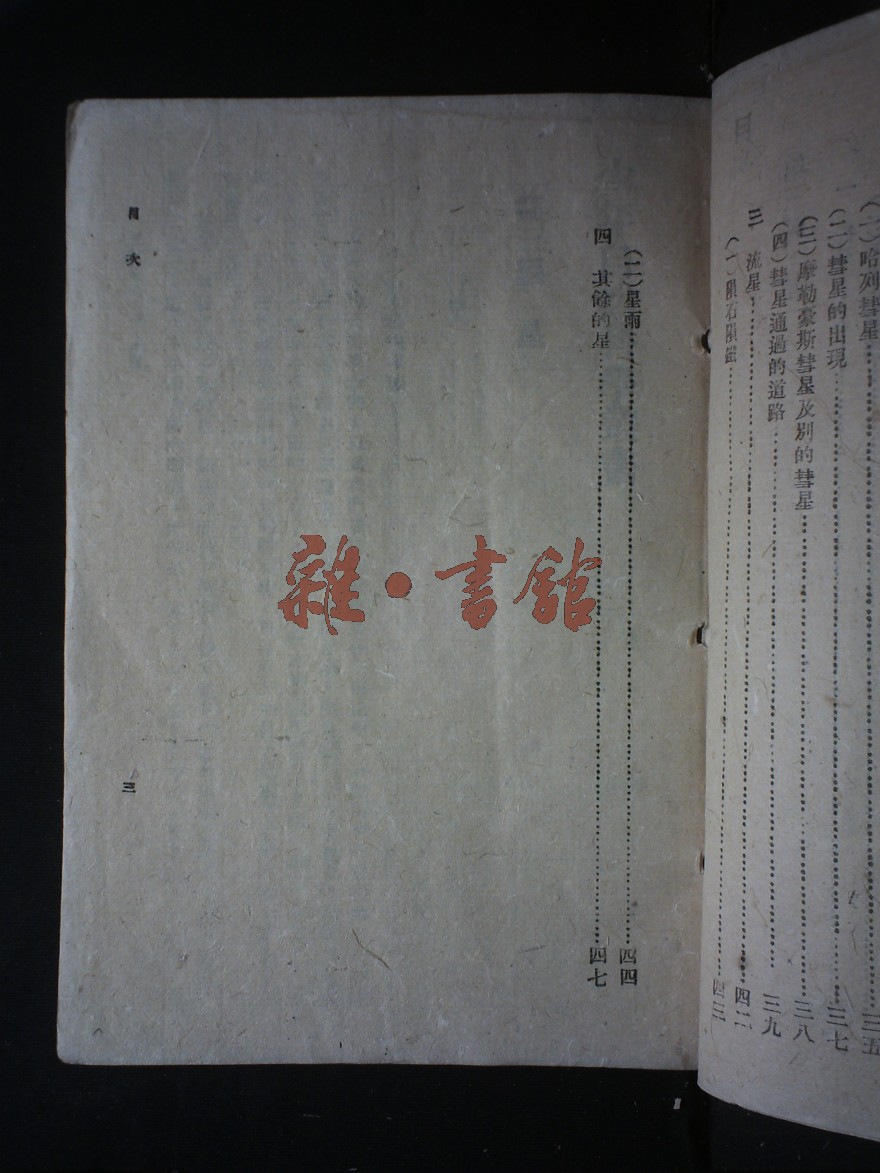 (一)哈列彗星……三五
(二)彗星的出現……三七
(三)摩勒豪斯彗星及别的彗星……三八
(四)彗星通過的道路……三九
三 流星……四二
(一)隕石隕鐵……四三
(二)星雨……四四
四 其餘的星……四七
目次
三
雜·書館